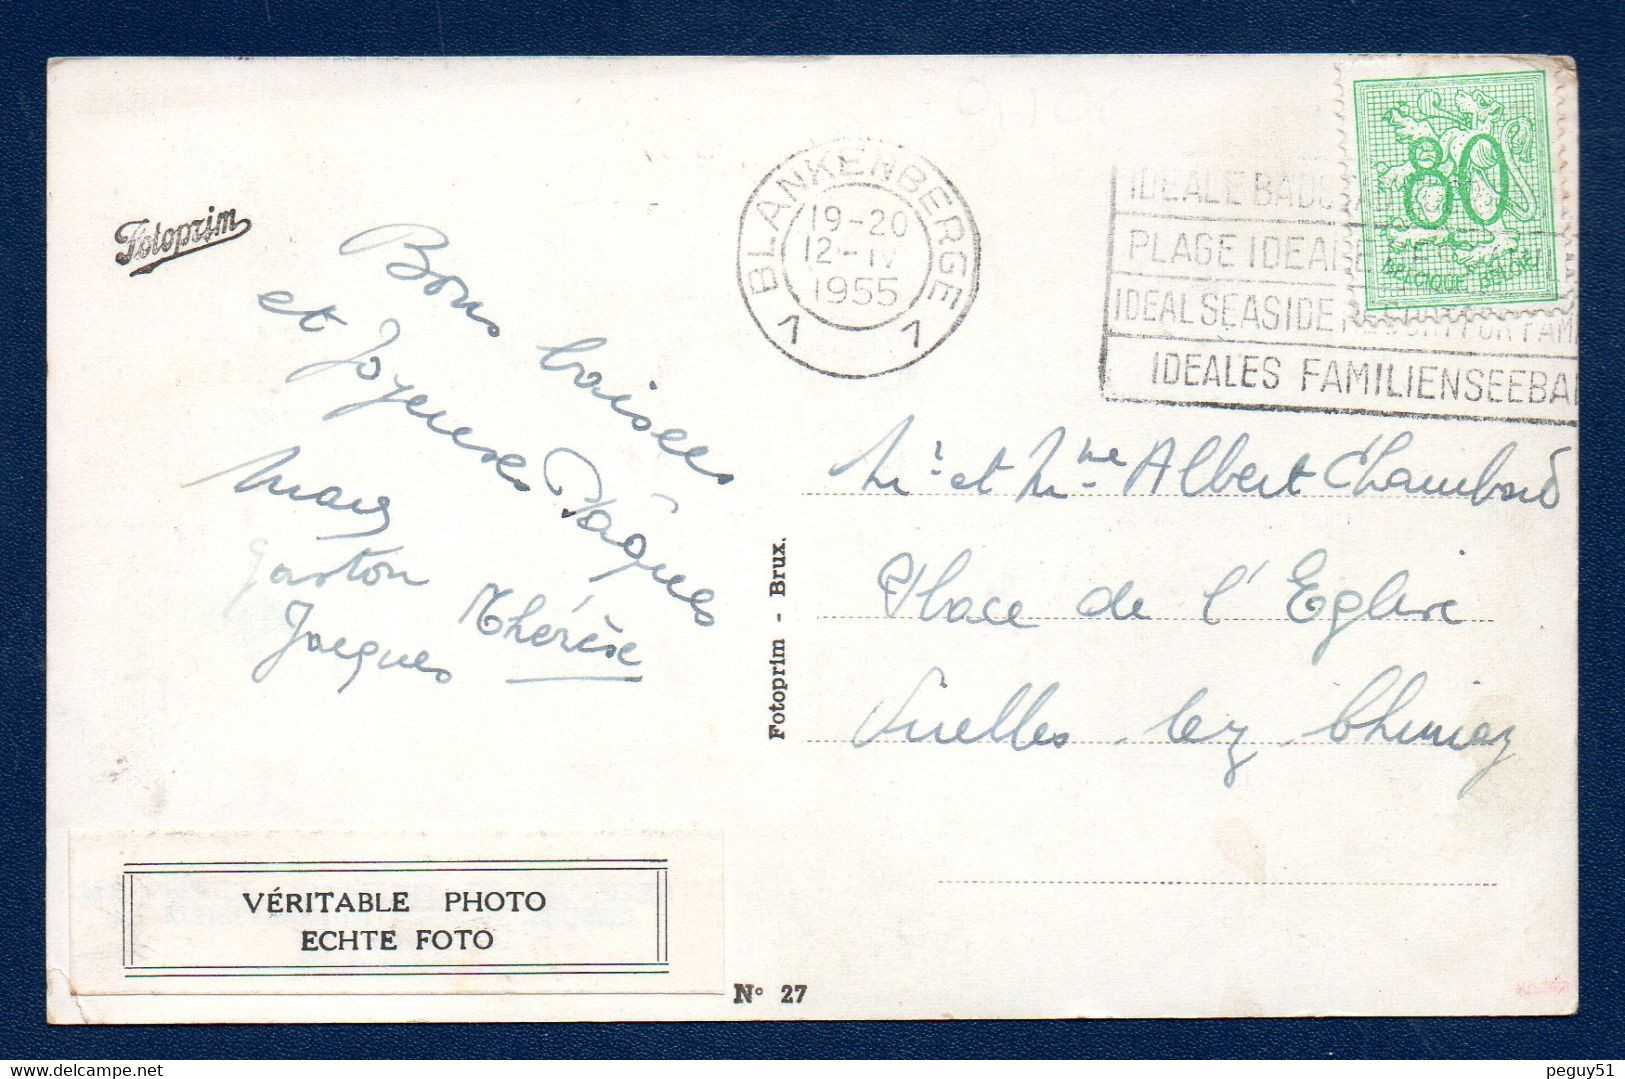 Fotoprim
Bons baisers
et Joyeuses Pâques
Gaston
Jacques Thérèse
BLANKENBERGE
19-20
12-IV
1955
1 1
IDEALE BADS
PLAGE IDEA
IDEAL SEASIDE RESORT FOR FAM
IDEALES FAMILIENSEEBA
80
BELGIQUE BELGIE
Mr et Mme Albert Chambord
Place de l'Eglise
Virelles lez Chimay
Fotoprim - Brux.
VÉRITABLE PHOTO
ECHTE FOTO
N° 27
peguy51